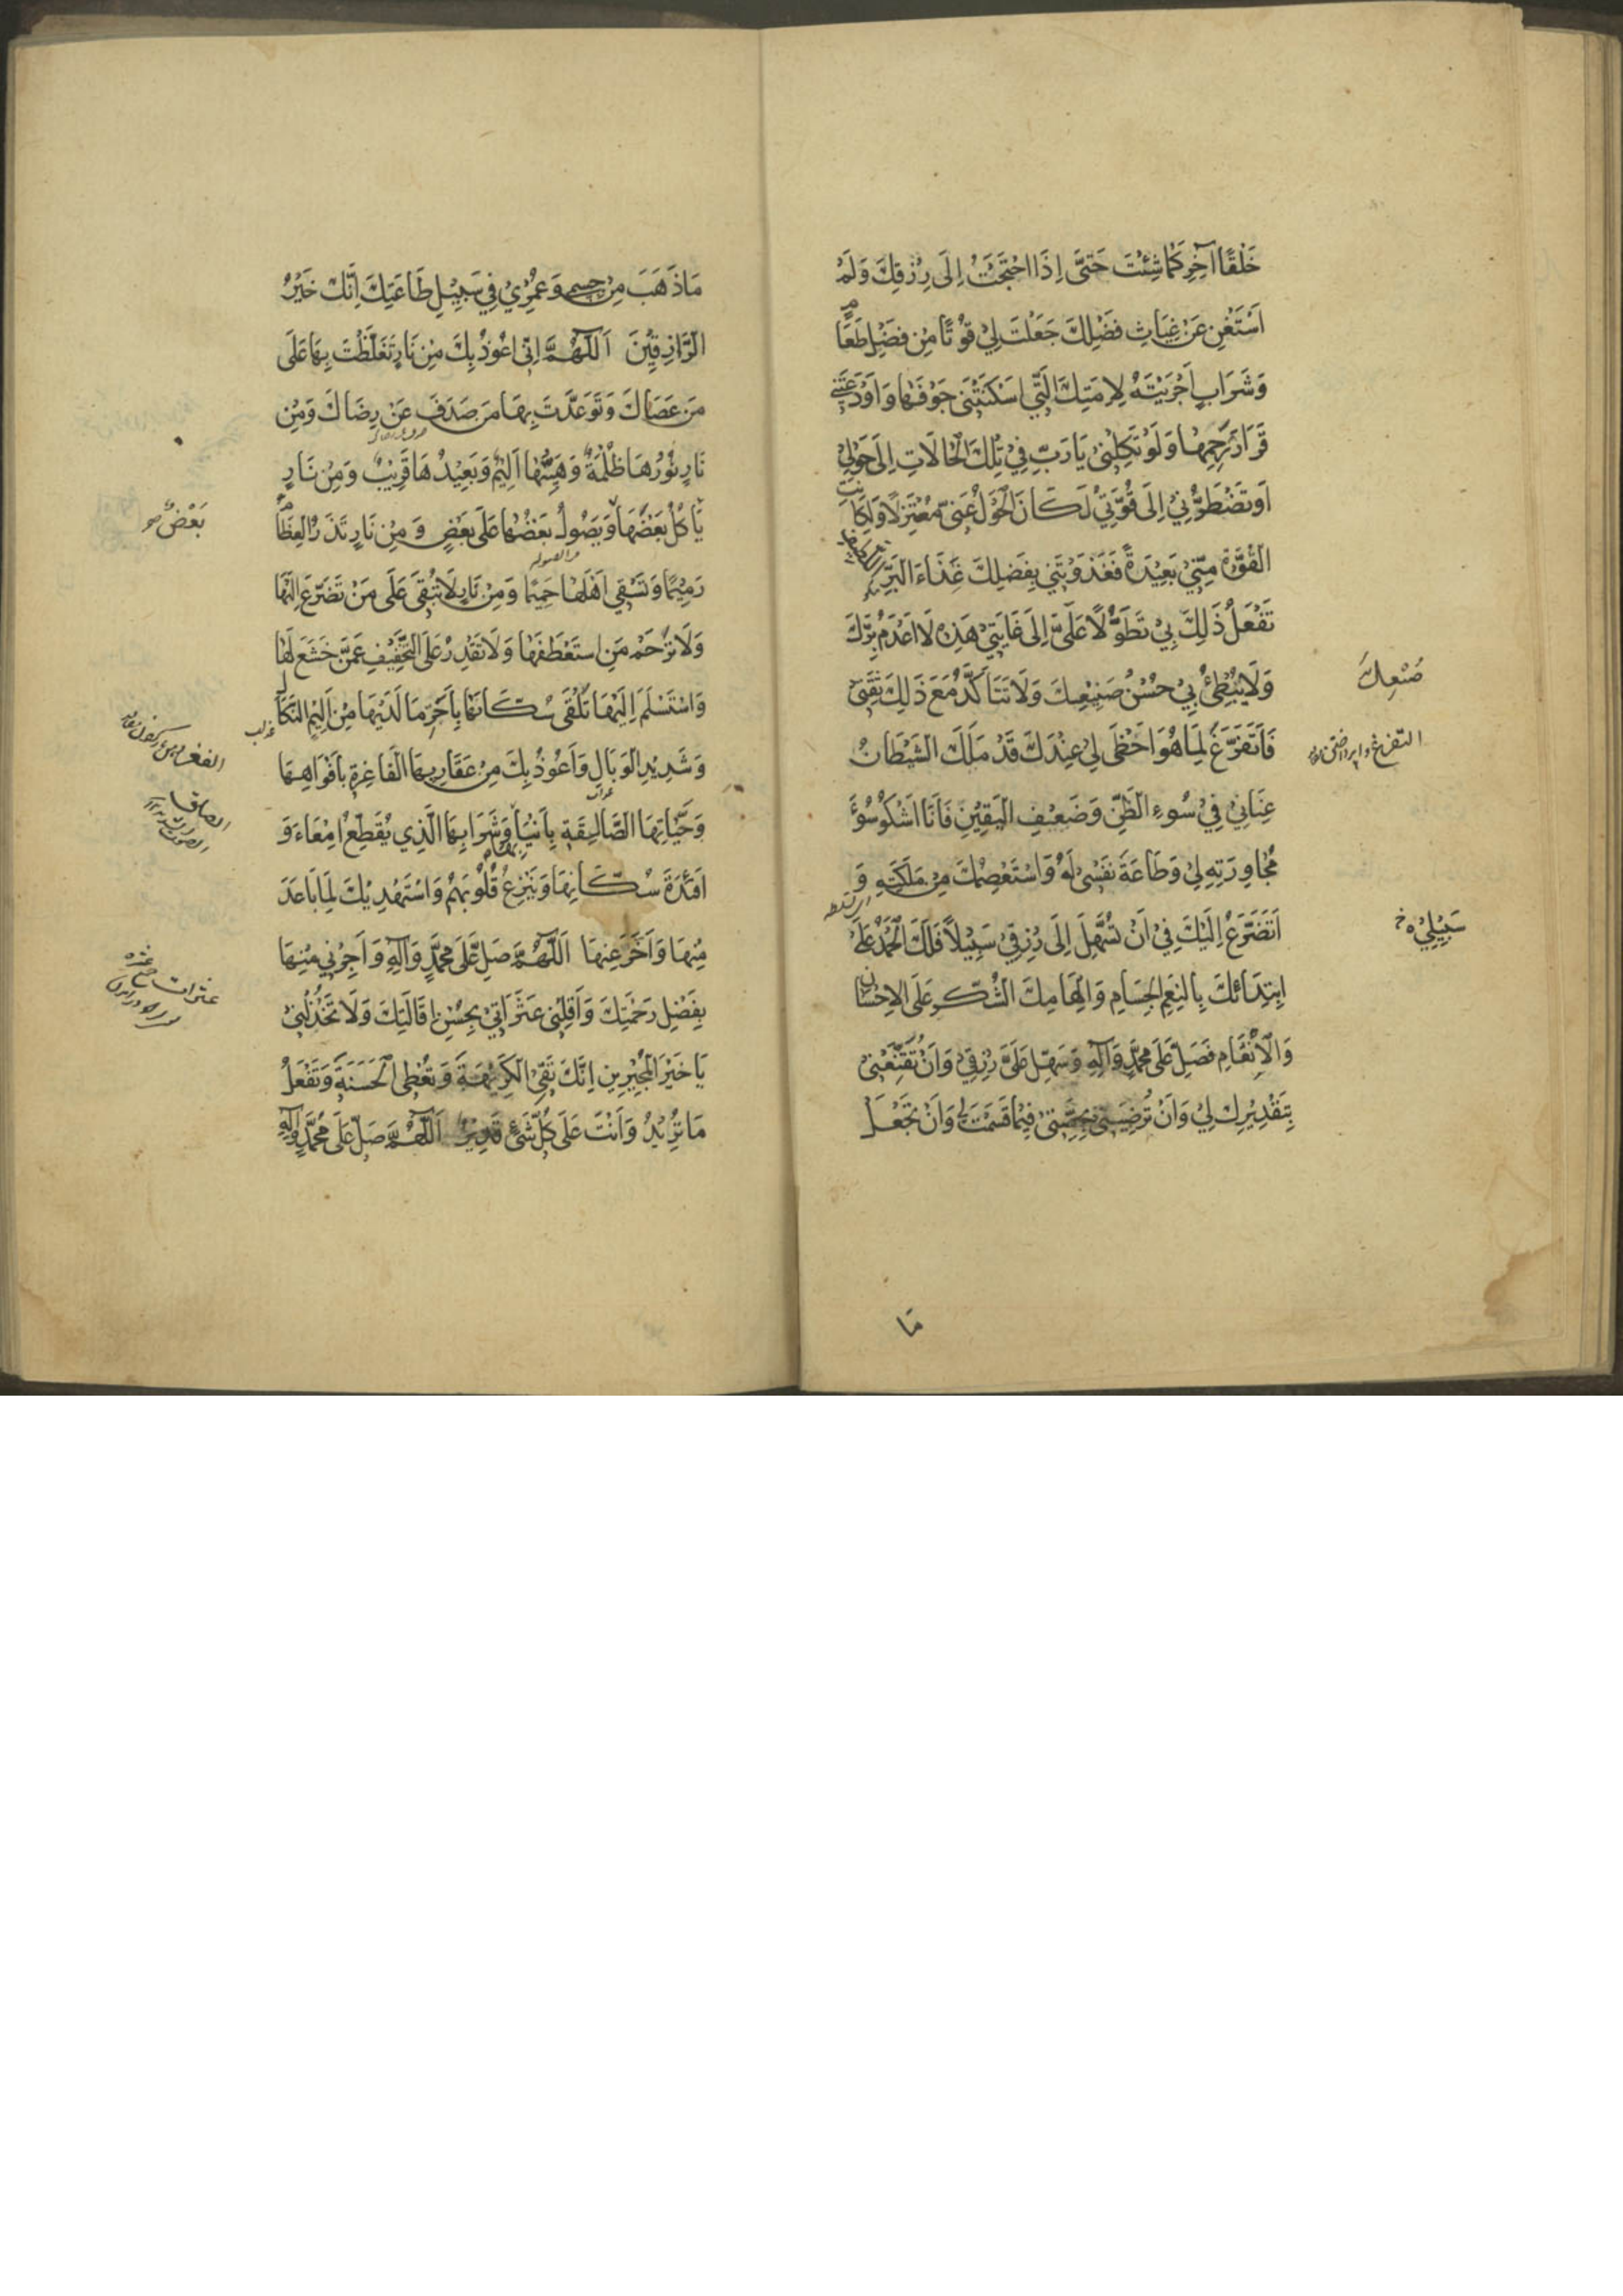 خَلْقًا آخَرَ كَمَا شِئْتَ حَتّٰى اِذَا احْتَجْتُ اِلٰى رِزْقِكَ وَلَمْ
اَسْتَغْنِ عَنْ غِيَاثِ فَضْلِكَ جَعَلْتَ لِيْ قُوْتًا مِنْ فَضْلِ طَعَامٍ
وَشَرَابٍ اَجْرَيْتَهُ لِاَمَتِكَ الَّتِي اَسْكَنْتَنِيْ جَوْفَهَا وَاَوْدَعْتَنِيْ
قَرَارَ رَحِمِهَا وَلَوْ تَكِلْنِيْ يَا رَبِّ فِيْ تِلْكَ الْحَالَاتِ اِلٰى حَوْلِيْ
اَوْ تَضْطَرُّنِيْ اِلٰى قُوَّتِيْ لَكَانَ الْحَوْلُ عَنِّيْ مُعْتَزِلًا وَلَكَانَتْ
الْقُوَّةُ مِنِّيْ بَعِيْدَةً فَغَذَوْتَنِيْ بِفَضْلِكَ غِذَاءَ الْبَرِّ
تَفْعَلُ ذٰلِكَ بِيْ تَطَوُّلًا عَلَيَّ اِلٰى غَايَتِيْ هٰذِهِ لَا اَعْدَمُ بِرَّكَ
وَلَا يُبْطِئُ بِيْ حُسْنُ صَنِيْعِكَ وَلَا تَتَأَكَّدُ مَعَ ذٰلِكَ ثِقَتِيْ
صُنْعِكَ
فَاَتَفَرَّغَ لِمَا هُوَ اَحْظٰى لِيْ عِنْدَكَ قَدْ مَلَكَ الشَّيْطَانُ
التفرغ
عِنَانِيْ فِيْ سُوْءِ الظَّنِّ وَضَعْفِ الْيَقِيْنِ فَاَنَا اَشْكُوْ سُوْءَ
مُجَاوَرَتِهِ لِيْ وَطَاعَةَ نَفْسِيْ لَهُ وَاَسْتَعْصِمُكَ مِنْ مَلَكَتِهِ وَ
اَتَضَرَّعُ اِلَيْكَ فِيْ اَنْ تُسَهِّلَ اِلٰى رِزْقِيْ سَبِيْلًا فَلَكَ الْحَمْدُ عَلَى
سَبِيْلِيْ خ
ابْتِدَائِكَ بِالنِّعَمِ الْجِسَامِ وَاِلْهَامِكَ الشُّكْرَ عَلَى الْاِحْسَانِ
وَالْاِنْعَامِ فَصَلِّ عَلٰى مُحَمَّدٍ وَآلِهِ وَسَهِّلْ عَلَيَّ رِزْقِيْ وَاَنْ تُقَنِّعَنِيْ
بِتَقْدِيْرِكَ لِيْ وَاَنْ تُرْضِيَنِيْ بِحِصَّتِيْ فِيْمَا قَسَمْتَ لِيْ وَاَنْ تَجْعَلَ
مَا
مَا ذَهَبَ مِنْ جِسْمِيْ وَعُمُرِيْ فِيْ سَبِيْلِ طَاعَتِكَ اِنَّكَ خَيْرُ
الرَّازِقِيْنَ اَللّٰهُمَّ اِنِّيْ اَعُوْذُ بِكَ مِنْ نَارٍ تَغَلَّظْتَ بِهَا عَلٰى
مَنْ عَصَاكَ وَتَوَعَّدْتَ بِهَا مَنْ صَدَفَ عَنْ رِضَاكَ وَمِنْ
نَارٍ نُوْرُهَا ظُلْمَةٌ وَهَيِّنُهَا اَلِيْمٌ وَبَعِيْدُهَا قَرِيْبٌ وَمِنْ نَارٍ
يَأْكُلُ بَعْضَهَا وَيَصُوْلُ بَعْضُهَا عَلٰى بَعْضٍ وَ مِنْ نَارٍ تَذَرُ الْعِظَامَ
بَعْضٌ
رَمِيْمًا وَتَسْقِيْ اَهْلَهَا حَمِيْمًا وَمِنْ نَارٍ لَا تُبْقِيْ عَلٰى مَنْ تَضَرَّعَ اِلَيْهَا
وَلَا تَرْحَمُ مَنِ اسْتَعْطَفَهَا وَلَا تَقْدِرُ عَلَى التَّخْفِيْفِ عَمَّنْ خَشَعَ لَهَا
وَاسْتَسْلَمَ اِلَيْهَا تَلْقٰى سُكَّانَهَا بِاَحَرِّ مَا لَدَيْهَا مِنْ اَلِيْمِ النَّكَالِ
وَشَدِيْدِ الْوَبَالِ وَاَعُوْذُ بِكَ مِنْ عَقَارِبِهَا الْفَاغِرَةِ بِاَفْوَاهِهَا
وَحَيَّاتِهَا الصَّالِقَةِ بِاَنْيَابِهَا وَشَرَابِهَا الَّذِيْ يُقَطِّعُ اَمْعَاءَ وَ
اَفْئِدَةَ سُكَّانِهَا وَيَنْزِعُ قُلُوْبَهُمْ وَاَسْتَهْدِيْكَ لِمَا بَاعَدَ
مِنْهَا وَاَخَّرَ عَنْهَا اَللّٰهُمَّ صَلِّ عَلٰى مُحَمَّدٍ وَآلِهِ وَاَجِرْنِيْ مِنْهَا
عثرات
بِفَضْلِ رَحْمَتِكَ وَاَقِلْنِيْ عَثَرَاتِيْ بِحُسْنِ اِقَالَتِكَ وَلَا تَخْذُلْنِيْ
يَا خَيْرَ الْمُجِيْرِيْنَ اِنَّكَ تَقِي الْكَرِيْهَةَ وَتُعْطِي الْحَسَنَةَ وَتَفْعَلُ
مَا تُرِيْدُ وَاَنْتَ عَلٰى كُلِّ شَيْءٍ قَدِيْرٌ اَللّٰهُمَّ صَلِّ عَلٰى مُحَمَّدٍ وَآلِهِ